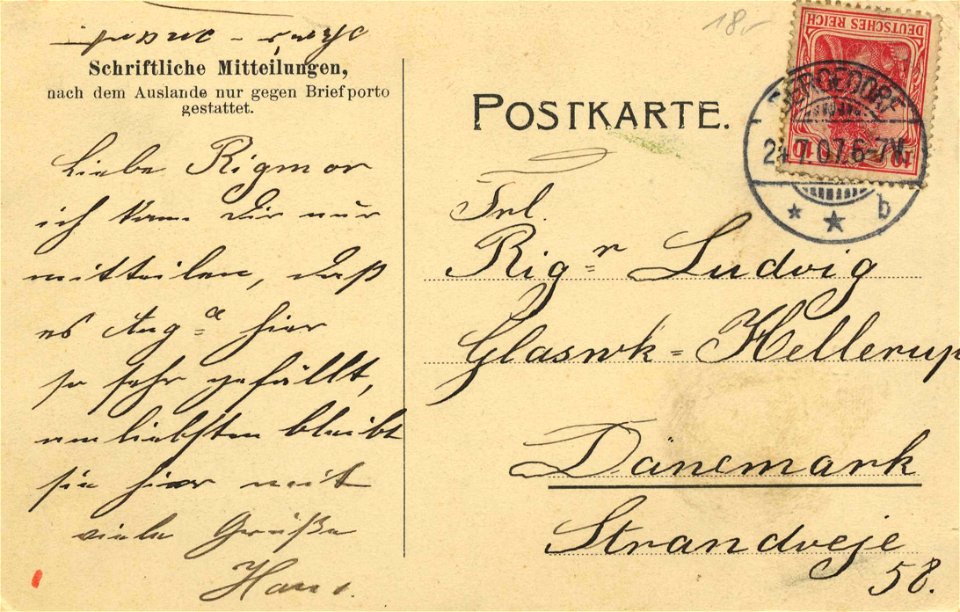 18.-
Schriftliche Mitteilungen,
nach dem Auslande nur gegen Briefporto
gestattet.
Liebe Rigmor
ich kann Dir nur
mitteilen, daß
es Ang.a hier
so sehr gefällt,
am liebsten bleibt
sie hier mit
viele Grüße
Hans.
POSTKARTE.
DEUTSCHES REICH
10
BERGEDORF
24.7.07.6-7N.
* * b
Frl.
Rig=r Ludvig
Glaswk=Hellerup
Dänemark
Strandveje
58.